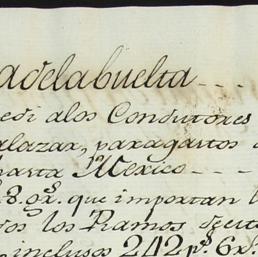 adelabuelta
edi alos Condutores
alazar, paragastos
hasta Mexico
8. gr.s que importan l
os los Ramos
inclusos 242 p.s 6 r.s